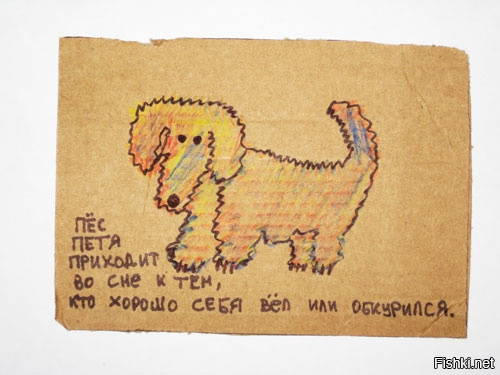 ПЁС
ПЕТЯ
ПРИХОДИТ
ВО СНЕ К ТЕМ,
КТО ХОРОШО СЕБЯ ВЁЛ ИЛИ ОБКУРИЛСЯ.
Fishki.net